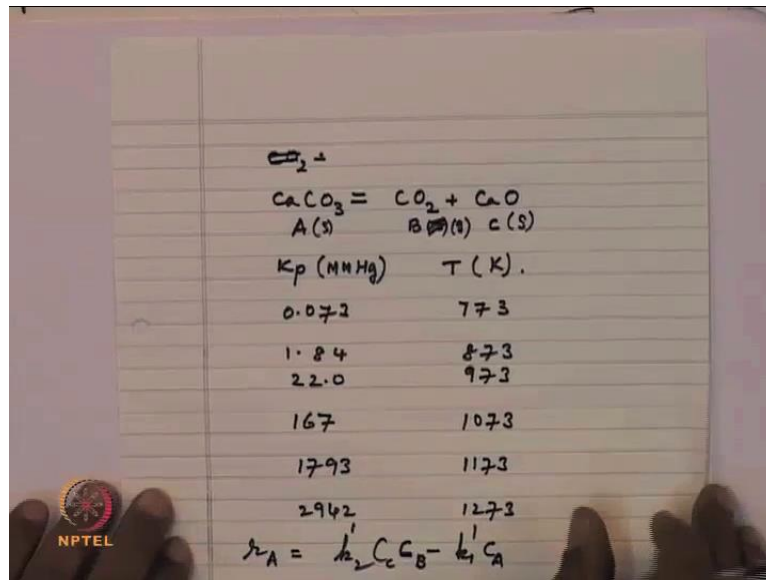 2 =
CaCO3 = CO2 + CaO
A (s) B (g) C (S)
Kp (MM Hg) T (K).
0.073 773
1.84 873
22.0 973
167 1073
1793 1173
2942 1273
rA = k2' Cc CB - k1' CA
NPTEL